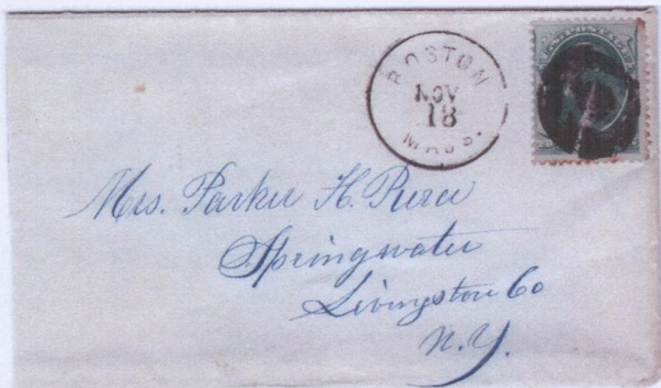 BOSTON
NOV
18
MASS.
Mrs. Parker H. Pierce
Springwater
Livingston Co
N.Y.